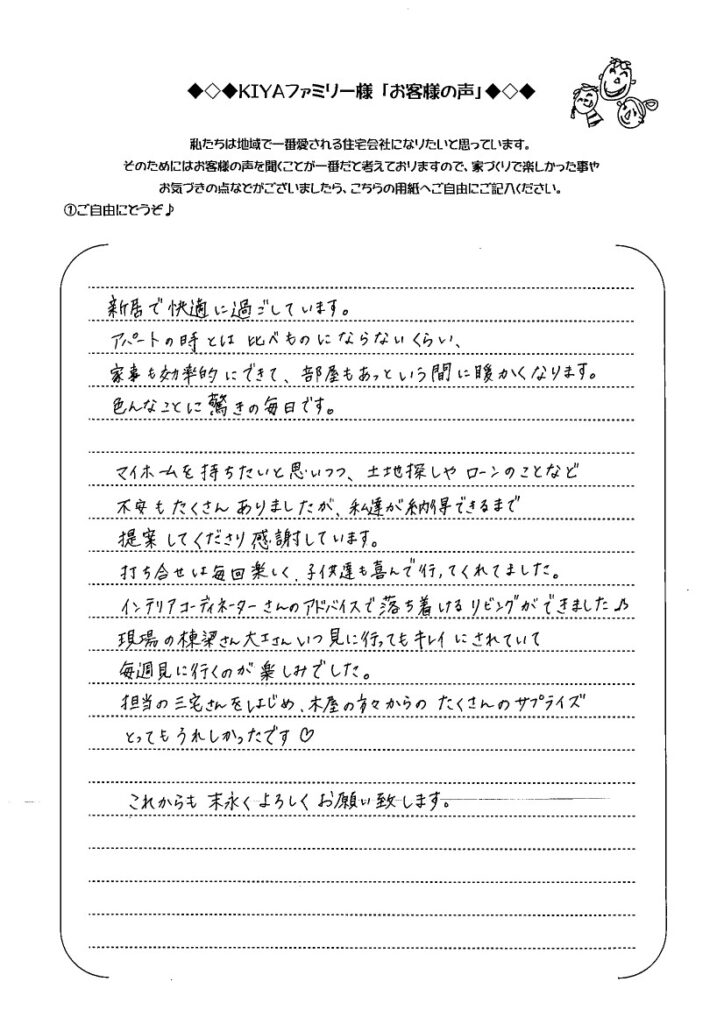 ◆◇◆KIYAファミリー様「お客様の声」◆◇◆
私たちは地域で一番愛される住宅会社になりたいと思っています。
そのためにはお客様の声を聞くことが一番だと考えておりますので、家づくりで楽しかった事や
お気づきの点などがございましたら、こちらの用紙へご自由にご記入ください。
①ご自由にどうぞ♪
新居で快適に過ごしています。
アパートの時とは比べものにならないくらい、
家事も効率的にできて、部屋もあっという間に暖かくなります。
色んなことに驚きの毎日です。
マイホームを持ちたいと思いつつ、土地探しやローンのことなど
不安もたくさんありましたが、私達が納得できるまで
提案してくださり感謝しています。
打ち合せは毎回楽しく、子供達も喜んで行ってくれてました。
インテリアコーディネーターさんのアドバイスで落ち着けるリビングができました♪
現場の棟梁さん大工さんいつ見に行ってもキレイにされていて
毎週見に行くのが楽しみでした。
担当の三宅さんをはじめ、木屋の方々からのたくさんのサプライズ
とってもうれしかったです♡
これからも末永くよろしくお願い致します。